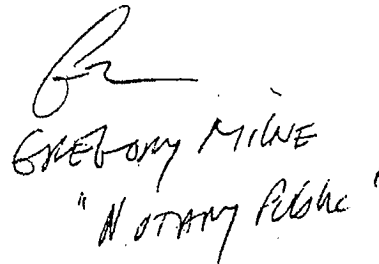 GREGORY MILNE
"NOTARY Public"